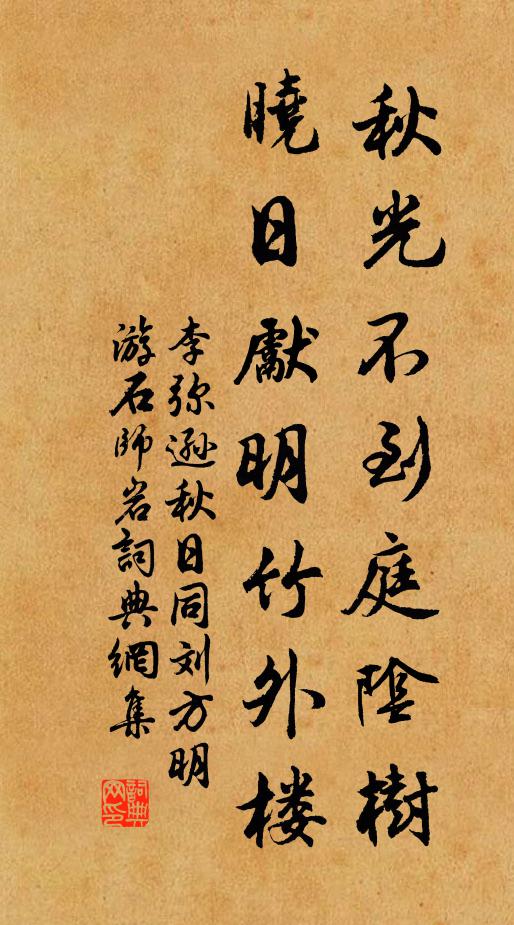 秋光不到庭陰樹
曉日獻明竹外楼
李弥遜秋日同刘方明
游石師岩詞典網集
詞典
网印